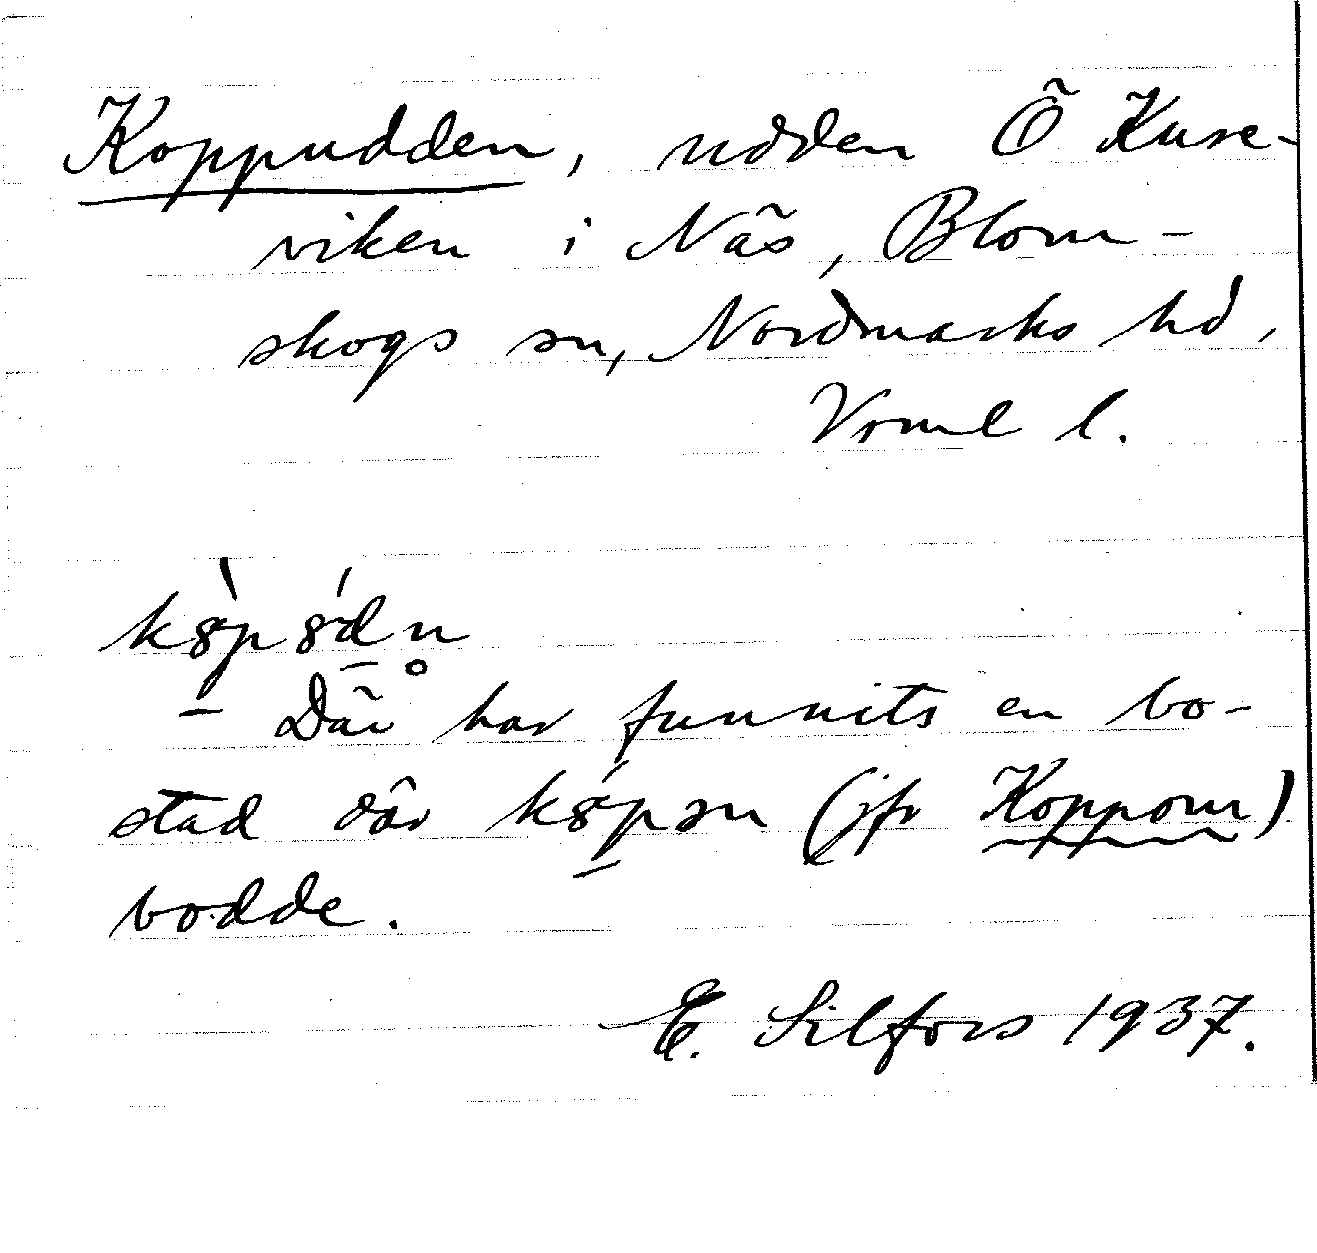 Koppudden, udden Ö Kuse-
viken i Näs, Blom-
skogs sn, Nordmarks hd,
Vrml l.
kòpódn̥
– Där har funnits en bo-
stad där kópən (jfr Koppom)
bodde.
E. Silfors 1937.